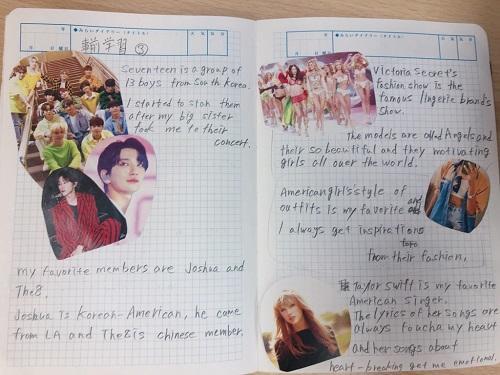 みらいダイアリー (タイトル)
年 月 日 曜日
天気 気温
事前学習 ③
Seventeen is a group of
13 boys from South Korea.
I started to stan them
after my big sister
took me to their
concert.
my favorite members are Joshua and
The8.
Joshua is Korean-American, he came
from LA and The8 is chinese member.
みらいダイアリー (タイトル)
年 月 日 曜日
天気 気温
Victoria Secret's
fashion show is the
famous lingerie brand's
show.
The models are called Angels and
their so beautiful and they motivating
girls all over the world.
American girl's style of
outfits is my favorite and
I always get inspirations
from their fashion.
Taylor swift is my favorite
American singer.
The lyrics of her songs are
always toucha my heart
and her songs about
heart-breaking get me emotional.